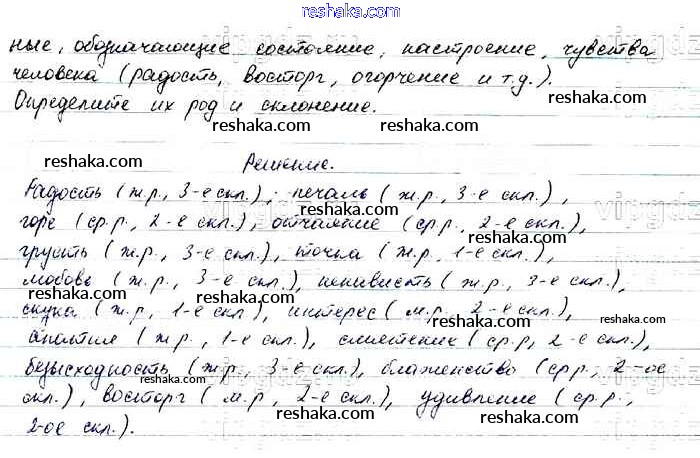 reshaka.com
ные, обозначающие состояние, настроение, чувства
человека (радость, восторг, огорчение и т.д.).
Определите их род и склонение.
reshaka.com reshaka.com
reshaka.com reshaka.com
Решение.
Радость (ж.р., 3-е скл.), печаль (ж.р., 3-е скл.),
vipgdz
горе (ср.р., 2-е скл.), отчаяние (ср.р., 2-е скл.),
reshaka.com reshaka.com
грусть (ж.р., 3-е скл.), тоска (ж.р., 1-е скл.),
reshaka.com reshaka.com
любовь (ж.р., 3-е скл.), ненависть (ж.р., 3-е скл.),
reshaka.com reshaka.com
скука (ж.р., 1-е скл), интерес (м.р. 2-е скл.),
reshaka.com
апатия (ж.р., 1-е скл.), смятение (ср.р, 2-е скл.),
reshaka.com
безысходность (ж.р., 3-е скл.), блаженство (ср.р., 2-ое
reshaka.com reshaka.com
скл.), восторг (м.р, 2-е скл.), удивление (ср.р.,
reshaka.com reshaka.com
2-ое скл.).
reshaka.com